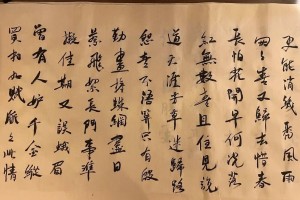 更能消幾番風雨
匆匆春又歸去惜春
長怕花開早何況落
紅無數春且住見說
道天涯芳草迷歸路
怨春不語算只有殷
勤畫簷蛛網盡日
惹飛絮長門事準
擬佳期又誤蛾眉
曾有人妒千金縱
買相如賦脈脈此情